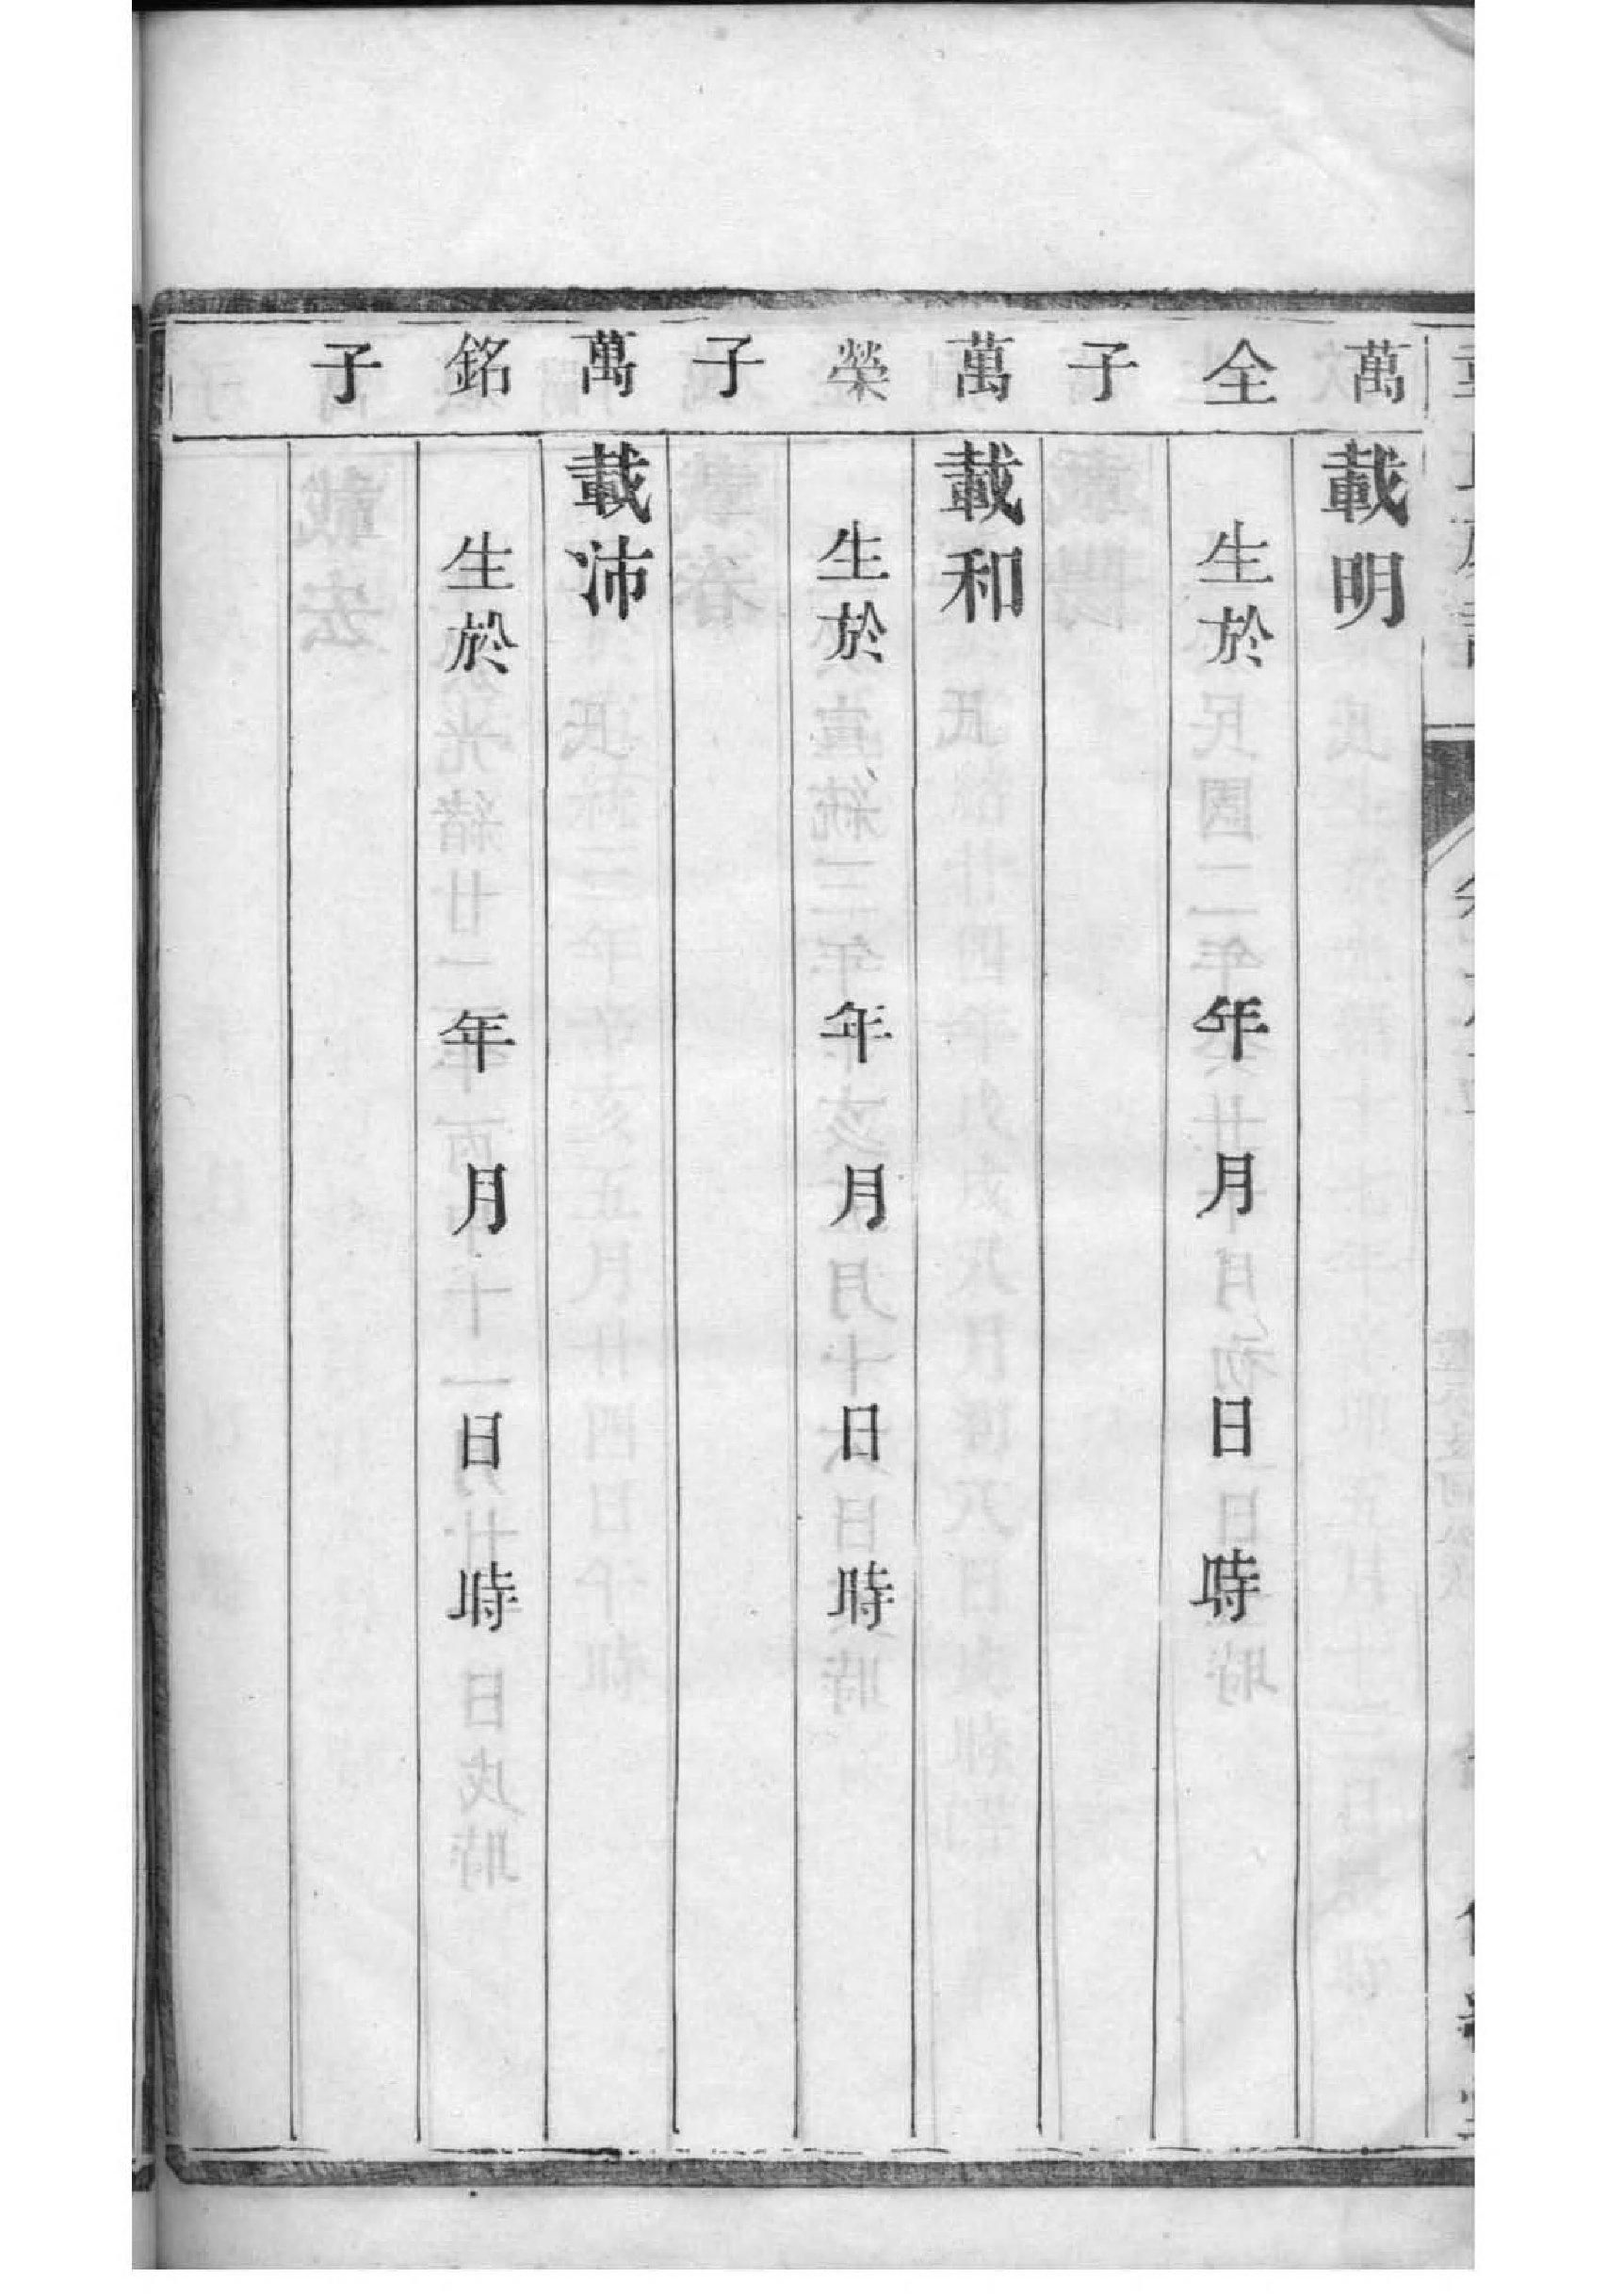 萬全子
載明
生於年月日時
萬榮子
載和
生於年月日時
萬銘子
載沛
生於年月日時